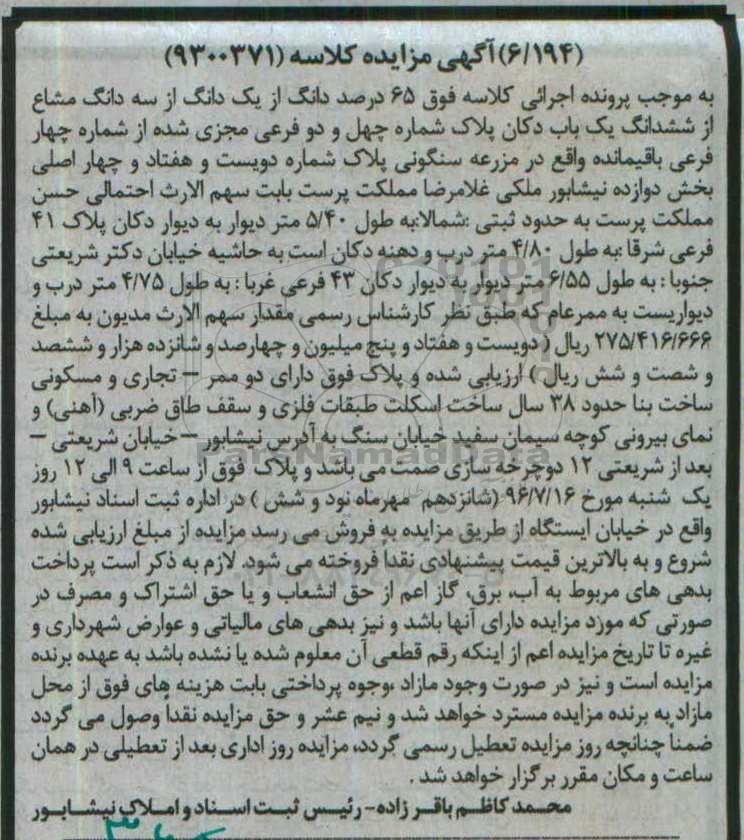 (۶/۱۹۴) آگهی مزایده کلاسه (۹۳۰۰۳۷۱)
به موجب پرونده اجرائی کلاسه فوق ۶۵ درصد دانگ از یک دانگ از سه دانگ مشاع
از ششدانگ یک باب دکان پلاک شماره چهل و دو فرعی مجزی شده از شماره چهار
فرعی باقیمانده واقع در مزرعه سنگونی پلاک شماره دویست و هفتاد و چهار اصلی
بخش دوازده نیشابور ملکی غلامرضا مملکت پرست بابت سهم الارث احتمالی حسن
مملکت پرست به حدود ثبتی :شمالا:به طول ۵/۴۰ متر دیوار به دیوار دکان پلاک ۴۱
فرعی شرقا :به طول ۴/۸۰ متر درب و دهنه دکان است به حاشیه خیابان دکتر شریعتی
جنوبا : به طول ۶/۵۵ متر دیوار به دیوار دکان ۴۳ فرعی غربا : به طول ۴/۷۵ متر درب و
دیواریست به ممرعام که طبق نظر کارشناس رسمی مقدار سهم الارث مدیون به مبلغ
۲۷۵/۴۱۶/۶۶۶ ریال ( دویست و هفتاد و پنج میلیون و چهارصد و شانزده هزار و ششصد
و شصت و شش ریال ) ارزیابی شده و پلاک فوق دارای دو ممر – تجاری و مسکونی
ساخت بنا حدود ۳۸ سال ساخت اسکلت طبقات فلزی و سقف طاق ضربی (آهنی) و
نمای بیرونی کوچه سیمان سفید خیابان سنگ به آدرس نیشابور – خیابان شریعتی –
بعد از شریعتی ۱۲ دوچرخه سازی صمت می باشد و پلاک فوق از ساعت ۹ الی ۱۲ روز
یک شنبه مورخ ۹۶/۷/۱۶ (شانزدهم مهرماه نود و شش ) در اداره ثبت اسناد نیشابور
واقع در خیابان ایستگاه از طریق مزایده به فروش می رسد مزایده از مبلغ ارزیابی شده
شروع و به بالاترین قیمت پیشنهادی نقداً فروخته می شود. لازم به ذکر است پرداخت
بدهی های مربوط به آب، برق، گاز اعم از حق انشعاب و یا حق اشتراک و مصرف در
صورتی که مورد مزایده دارای آنها باشد و نیز بدهی های مالیاتی و عوارض شهرداری و
غیره تا تاریخ مزایده اعم از اینکه رقم قطعی آن معلوم شده یا نشده باشد به عهده برنده
مزایده است و نیز در صورت وجود مازاد ،وجوه پرداختی بابت هزینه های فوق از محل
مازاد به برنده مزایده مسترد خواهد شد و نیم عشر و حق مزایده نقداً وصول می گردد
ضمناً چنانچه روز مزایده تعطیل رسمی گردد، مزایده روز اداری بعد از تعطیلی در همان
ساعت و مکان مقرر برگزار خواهد شد .
محمد کاظم باقر زاده- رئیس ثبت اسناد و املاک نیشابور
ParsNamadData